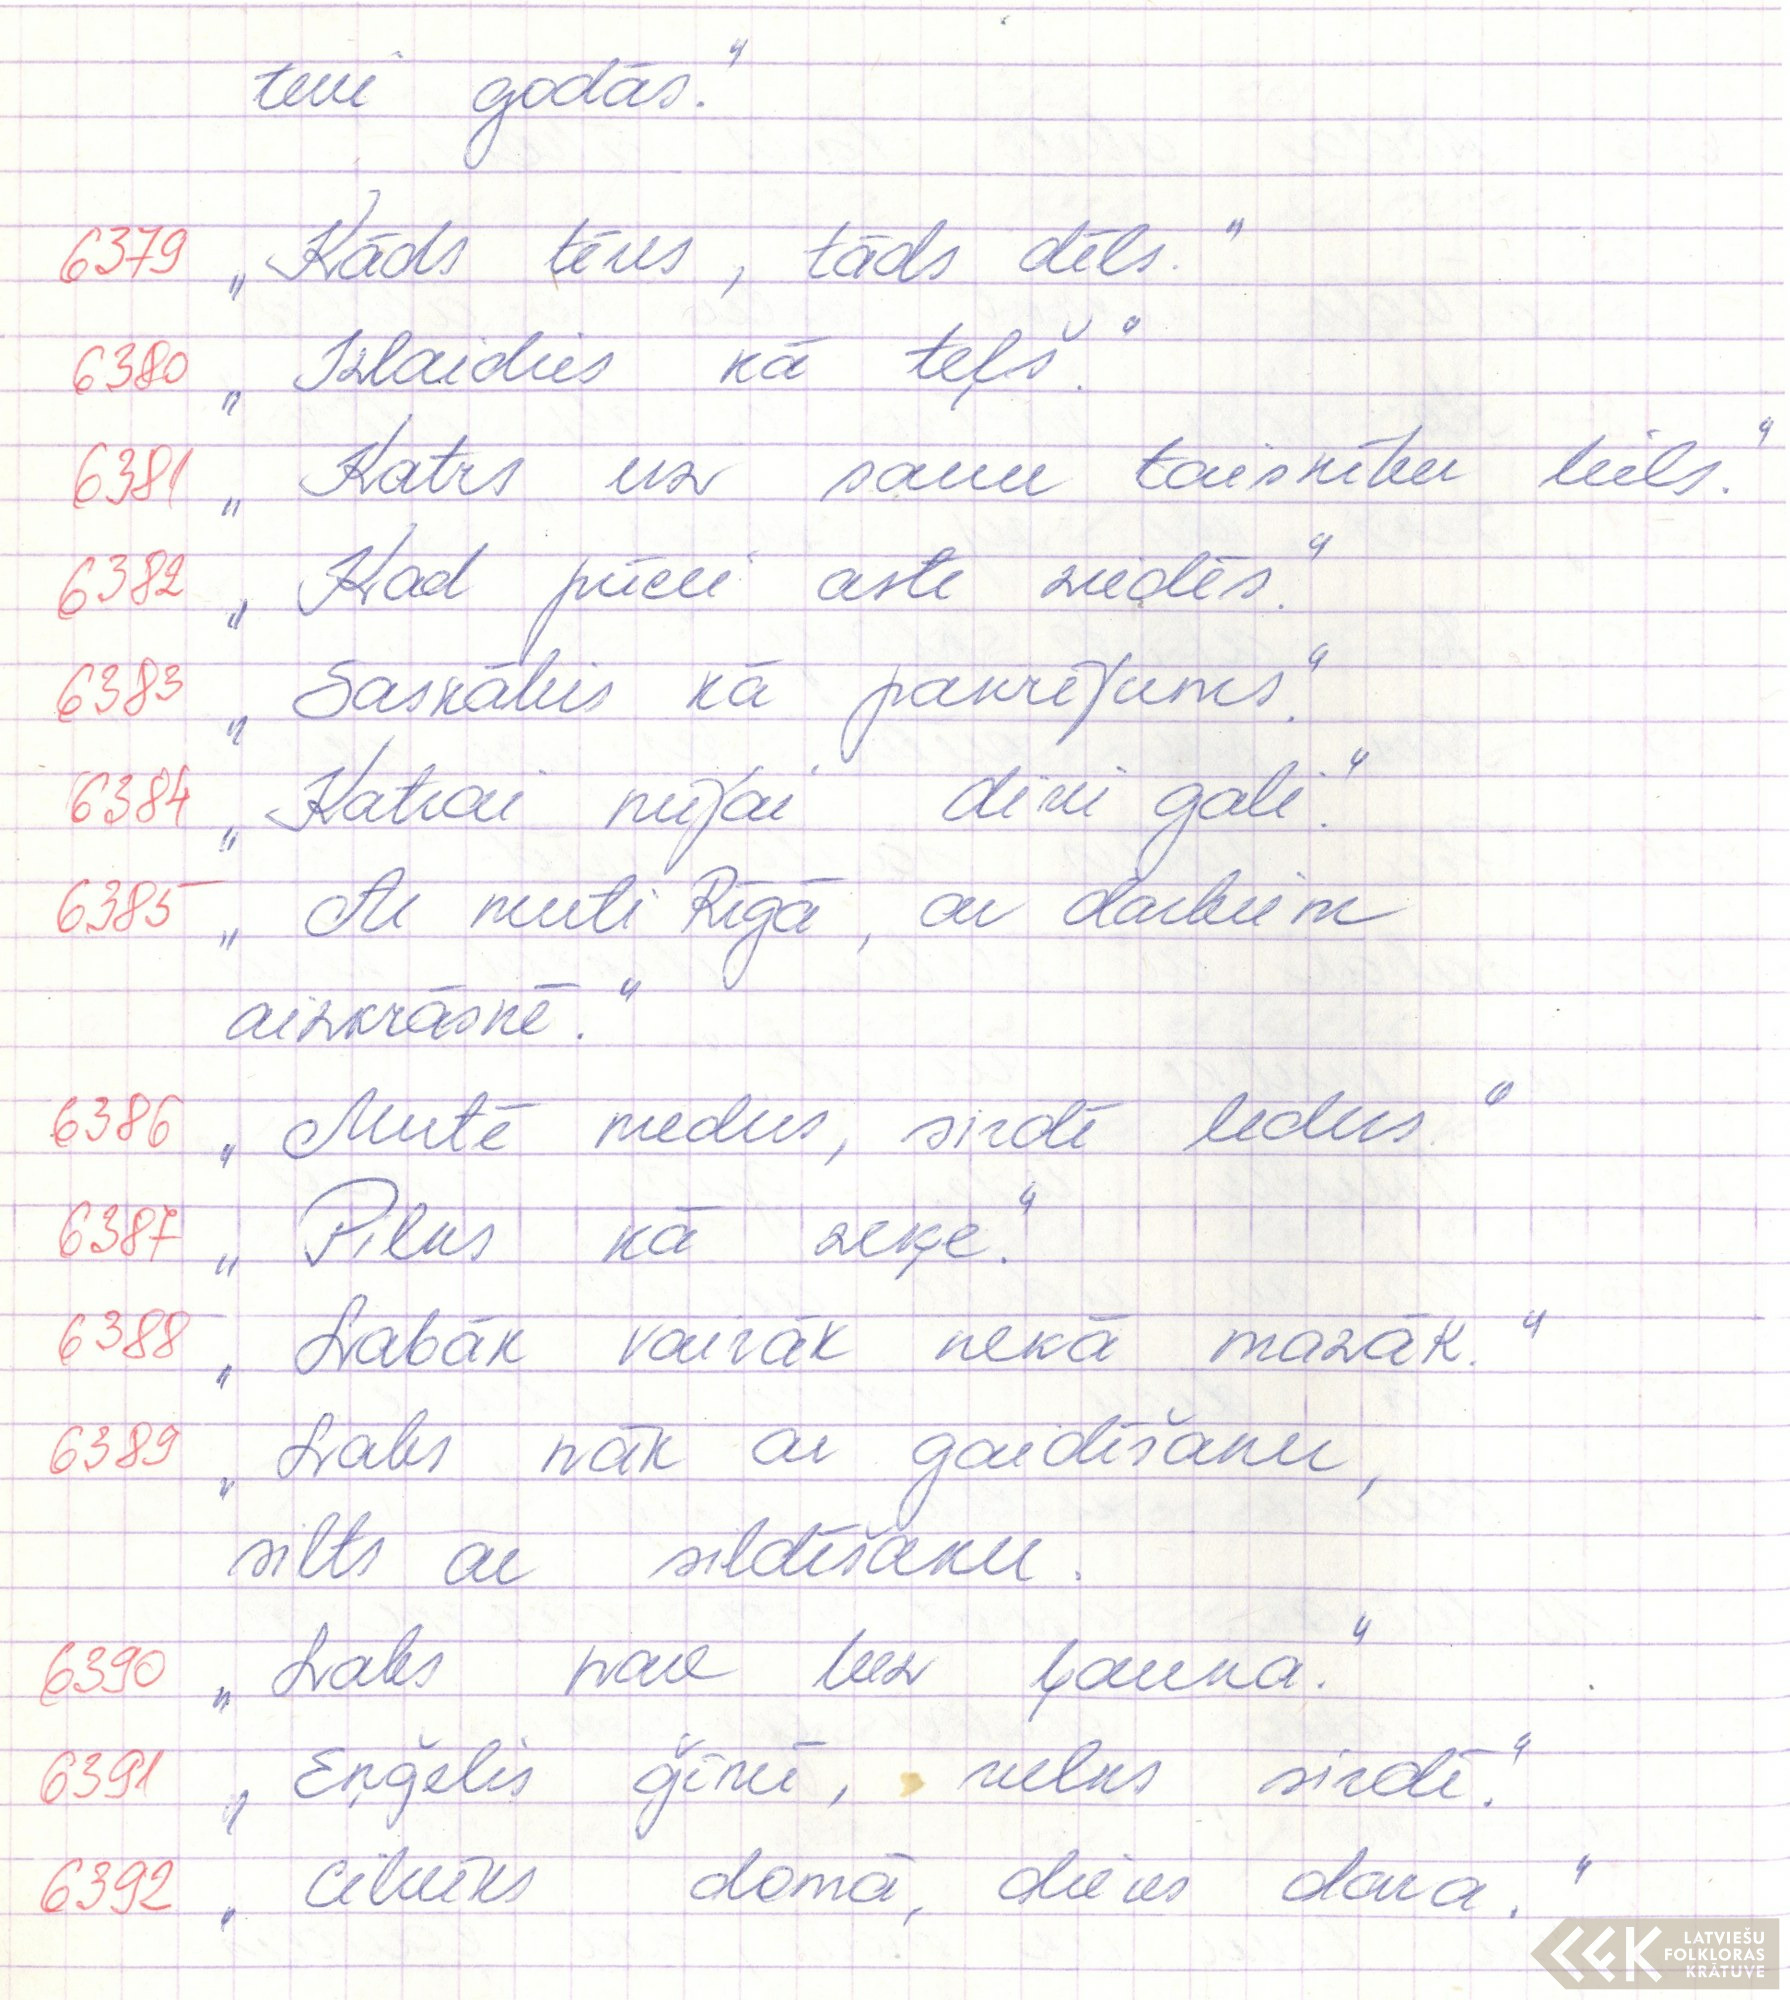 tevi godās."
6379 „Kāds tēvs, tāds dēls."
6380 „Izlaidies kā teļš."
6381 „Katrs uz savu taisnību liels."
6382 „Kad pūcei aste ziedēs."
6383 „Saskābis kā paniņums."
6384 „Katrai nūjai divi gali."
6385 „Ar muti Rīgā, ar darbiem
aizkrāsnē."
6386 „Mutē medus, sirdī ledus"
6387 „Pilns kā zeķe."
6388 „Labāk vairāk nekā mazāk."
6389 „Labs nāk ar gaidīšanu,
silts ar sildīšanu.
6390 „Labs nav bez ļauna."
6391 „Eņģelis ģīmī, velns sirdī."
6392 „Cilvēks domā, dievs dara."
LATVIEŠU
FOLKLORAS
KRĀTUVE